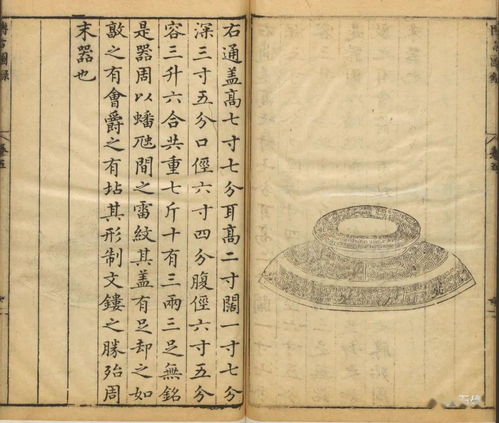 右通盖高七寸七分耳高二寸闊一寸七分
深三寸五分口徑六寸四分腹徑六寸五分
容三升六合共重七斤十有三兩三足無銘
是器周以蟠虺間之雷紋其盖有足却之如
敦之有會爵之有坫其形制文鏤之勝殆周
末器也
博古圖錄
卷五